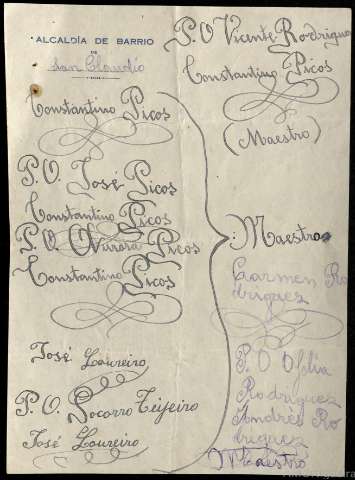 ALCALDÍA DE BARRIO
DE
San Claudio
Constantino Picos
P.O. José Picos
Constantino Picos
P.O. Aurora Picos
Constantino Picos
José Loureiro
P.O. Socorro Teijeiro
José Loureiro
P.O Vicente Rodriguez
Constantino Picos
(Maestro)
: Maestro
Carmen Ro
driguez
P.O Ofelia
Rodriguez
Andrés Ro
driguez
Maestro